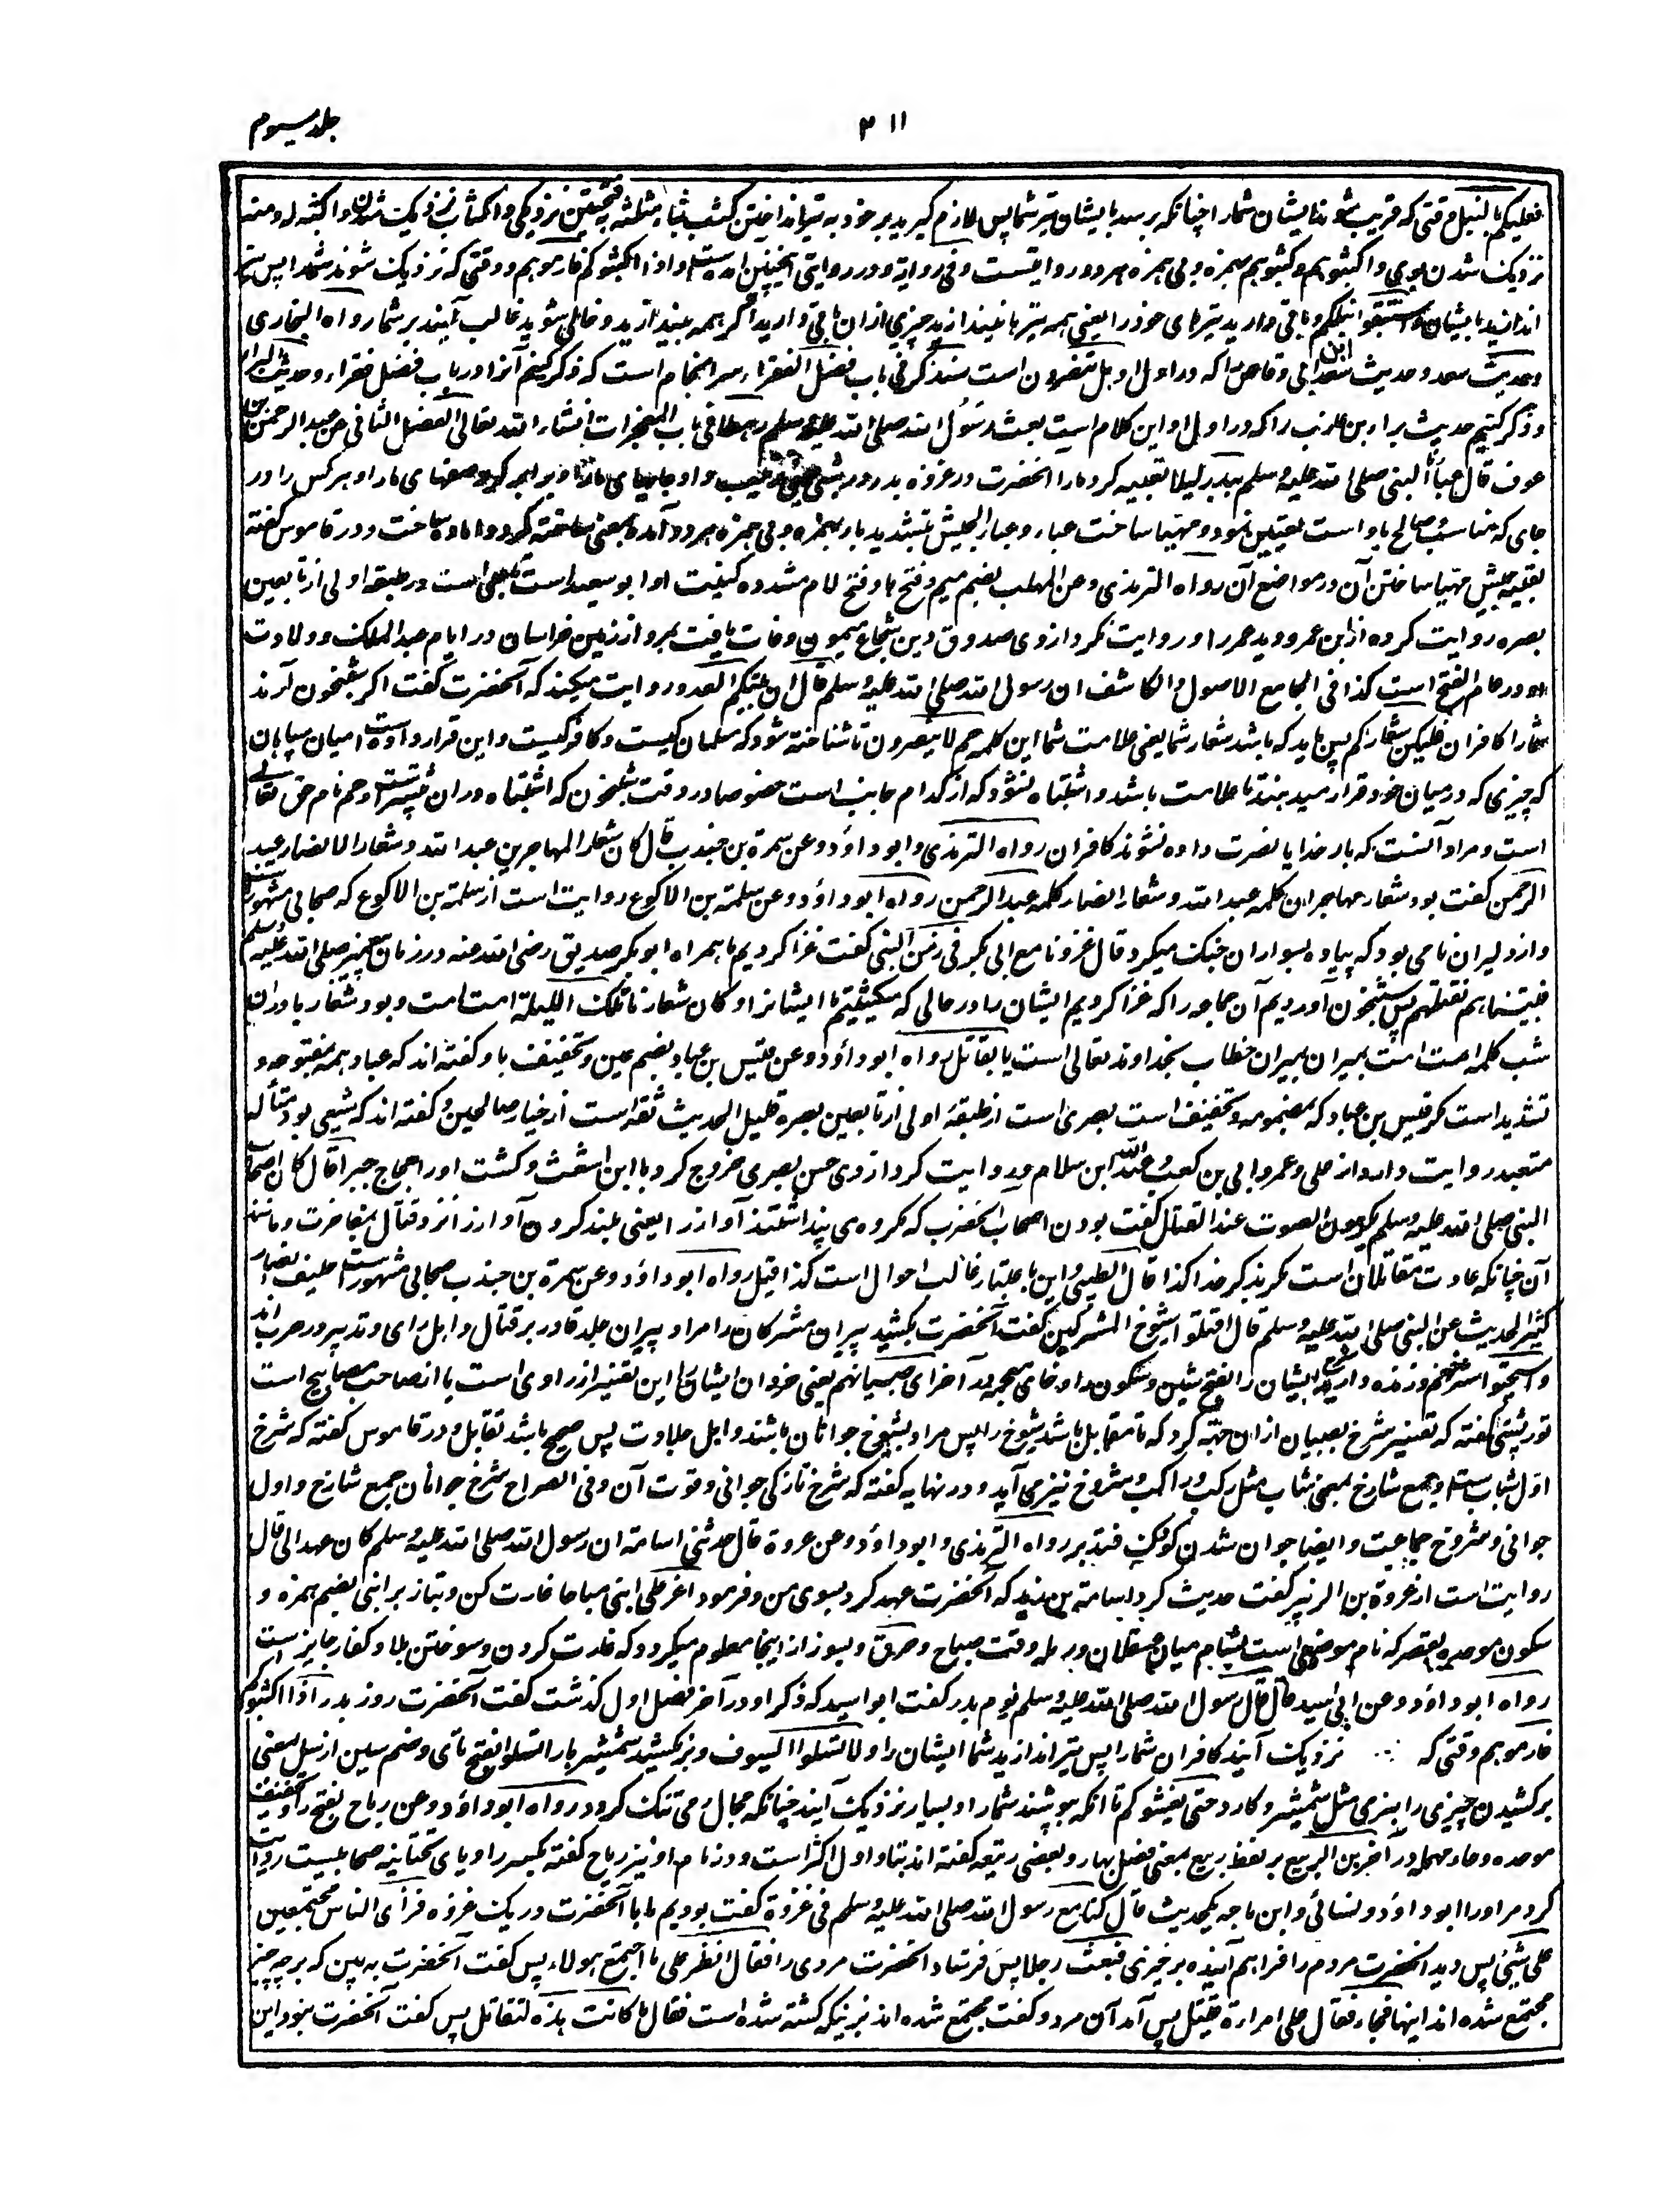 جلد سیوم
۳۱۱
فعلیکم بالنبل وقتی که قریب شوند ایشان شمارا چنانکه برسد بایشان تیر شما پس لازم گیرید بر خود به تیر انداختن کثب بثاء مثلثه بفتحتین نزدیکی و اکثاب نزدیک شدن و اکثبه له و منه
نزدیک شدن بوی و اکثبوهم و کثبوهم بهمزه و بی همزه هر دو روایتست و فی روایة و در روایتی اینچنین آمده است اذا اکثبوکم فارموهم وقتی که نزدیک شوند شمارا پس تیر
اندازید بایشان و استبقوا نبلکم و باقی دارید تیرهای خود را یعنی همه تیرها نیندازید چیزی ازان باقی دارید اگر همه بیندازید و خالی شوید غالب آیند بر شما رواه البخاری
و حدیث سعد و حدیث سعد ابن ابی وقاص را که در اول او هل تنصرون است سنذکر فی باب فضل الفقراء سرانجام است که ذکر کنیم آنرا در باب فضل فقراء و حدیث البراء
و ذکر کنیم حدیث براء بن عازب را که در اول او این کلام است بعث رسول الله صلی الله علیه وسلم رهطا فی باب المعجزات انشاء الله تعالی الفصل الثانی عن عبد الرحمن بن
عوف قال عبأنا النبی صلی الله علیه وسلم ببدر لیلا تعبیه کرد مارا آنحضرت در غزوه بدر در شبی یعنی ترتیب داد و جاهای مارا و برابر کرد صفهای مارا و هر کس را در
جای که مناسب و صالح باو است تعیین نمود و مهیا ساخت عباء و عبأ الجیش بتشدید با و بهمزه و بی همزه هر دو آمده بمعنی ساخته کرد و اماده ساخت و در قاموس گفته
تعبیه جیش مهیا ساختن آن در مواضع آن رواه الترمذی و عن المهلب بضم میم و فتح ها و فتح لام مشدده کنیت او ابو سعید است تابعی است در طبقه اولی از تابعین
بصره روایت کرده از ابن عمرو و دید عمر را و روایت نکرد از وی صدوق دین شجاع میمون وفات یافت بمرو از زمین خراسان در ایام عبد الملک و ولادت
او در عام الفتح است کذا فی الجامع الاصول و الکاشف ان رسول الله صلی الله علیه وسلم قال ان بیتکم العدو روایت میکند که آنحضرت گفت اگر شبخون آرند
شمارا کافران فلیکن شعارکم پس باید که باشد شعار شما یعنی علامت شما این کلمه حم لا ینصرون تا شناخته شود که مسلمان کیست و کافر کیست و این قرار داده است میان سپاهان
که چیزی که در میان خود قرار میدهند تا علامت باشد و اشتباه نشود که از کدام جانب است خصوصا در وقت شبخون که اشتباه دران بیشترست و حم نام حق تعالی
است و مراد آنست که بار خدایا نصرت داده نشوند کافران رواه الترمذی و ابو داؤد و عن سمرة بن جندب قال کان شعار المهاجرین عبد الله و شعار الانصار عبد
الرحمن گفت بود شعار مهاجران کلمه عبد الله و شعار انصار کلمه عبد الرحمن رواه ابو داؤد و عن سلمة بن الاکوع روایت است از سلمة بن الاکوع که صحابی مشهور است
و از دلیران نامی بود که پیاده بسواران جنگ میکرد قال غزونا مع ابی بکر فی زمن النبی گفت غزا کردیم ما همراه ابو بکر صدیق رضی الله عنه در زمان پیغمبر صلی الله علیه وسلم
فبیتناهم نقتلهم پس شبخون آوردیم آن جماعه را که غزا کردیم ایشان را در حالی که میکشتیم ما ایشانرا و کان شعارنا تلک اللیلة امت امت و بود شعار ما دران
شب کلمه امت امت بمیران بمیران خطاب بخداوند تعالی است یا بقاتل رواه ابو داؤد و عن قیس بن عباد بضم عین و تخفیف با و گفته اند که عباد همه مفتوحه و
تشدید است مگر قیس بن عباد که بمضمومه و تخفیف است بصری است از طبقه اولی از تابعین بصره قلیل الحدیث ثقه است از خیار صالحین و گفته اند که شیعی بود متأله
متعبد روایت دارد از علی و عمر و ابی بن کعب و عبد الله ابن سلام و روایت کرد از وی حسن بصری خروج کرد با ابن اشعث و کشت او را حجاج جبرا قال کان اصحاب
النبی صلی الله علیه وسلم یکرهون الصوت عند القتال گفت بودند اصحاب آنحضرت که مکروه می پنداشتند آواز را یعنی بلند کردن آواز را نزد قتال بمفاخرت و مانند
آن چنانکه عادت مقاتلان است مگر بذکر خدا کذا قال الطیبی و این باعتبار غالب احوال است کذا قیل رواه ابو داؤد و عن سمرة بن جندب صحابی مشهورست حلیف انصار
کثیر الحدیث عن النبی صلی الله علیه وسلم قال اقتلوا شیوخ المشرکین گفت آنحضرت بکشید پیران مشرکان را مراد پیران جلد قادر بر قتال و اهل رای و تدبیر در حرب اند
و استحیوا شرخهم و زنده دارید ایشان را بفتح شین و سکون را و خای معجمه در آخر ای صبیانهم یعنی خردان ایشان را این تفسیر از راوی است یا از صاحب مصابیح است
تورپشتی گفته که تفسیر شرخ بصبیان ازان جهة کرد که تا مقابل باشد شیوخ را پس مراد بشیوخ جوانان باشند و اهل جلادت پس صحیح باشد تقابل و در قاموس گفته که شرخ
اول شباب ست و جمع شارخ بمعنی شاب مثل رکب و راکب و شروخ نیز می آید و در نهایه گفته که شرخ تازگی جوانی و قوت آن و فی الصراح شرخ جوانان جمع شارخ و اول
جوانی و شروخ جماعت و ایضا جوان شدن کودک فتدبر رواه الترمذی و ابو داؤد و عن عروة قال حدثنی اسامة ان رسول الله صلی الله علیه وسلم کان عهد الی قال
روایت است از عروة بن الزبیر گفت حدیث کرد اسامة بن زید که آنحضرت عهد کرد بسوی من و فرمود اغر علی ابنی صباحا غارت کن و بتاز بر ابنی بضم همزه و
سکون موحده بقصر که نام موضعی است بشام میان عسقلان و رمله وقت صباح و حرق و بسوز از اینجا معلوم میگردد که غارت کردن و سوختن بلاد کفار جایز است
رواه ابو داؤد و عن ابی اسید قال قال رسول الله صلی الله علیه وسلم یوم بدر گفت ابو اسید که ذکر او در آخر فصل اول گذشت گفت آنحضرت روز بدر اذا اکثبوکم
فارموهم وقتی که نزدیک آیند کافران شمارا پس تیر اندازید شما ایشان را و لا تسلوا السیوف و برمکشید شمشیرها را تسلوا بفتح تای و ضم سین از سل بمعنی
برکشیدن چیزی را بنرمی مثل شمشیر و کارد حتی یغشوکم تا آنکه بپوشند شمارا و بسیار نزدیک آیند چنانکه مجال رمی تنگ گردد رواه ابو داؤد و عن رباح بفتح را و تخفیف
موحده و حاء مهمله در آخر بن الربیع بر لفظ ربیع بمعنی فصل بهار و بعضی ربیعه گفته اند بتا و اول اکثر است و در نام او نیز ریاح گفته بکسر را و یای تحتانیه صحابیست روایت
کرد مر او را ابو داؤد و نسائی و ابن ماجه یکحدیث قال کنا مع رسول الله صلی الله علیه وسلم فی غزوة گفت بودیم ما با آنحضرت در یک غزوه فرأی الناس مجتمعین
علی شیئ پس دید آنحضرت مردم را فراهم آینده بر چیزی فبعث رجلا پس فرستاد آنحضرت مردی را فقال انظر علی ما اجتمع هولاء پس گفت آنحضرت به بین که بر چه چیز
مجتمع شده اند اینها فجاء فقال علی امرارة قتیل پس آمد آن مرد و گفت مجتمع شده اند بر زنیکه کشته شده است فقال ما کانت هذه لتقاتل پس گفت آنحضرت نبود این